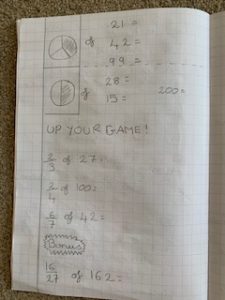 21 =
of 42 =
99 =
28 =
of 200 =
15 =
UP YOUR GAME!
2/3 of 27 =
2/4 of 100 =
6/7 of 42 =
Bonus
16/27 of 162 =